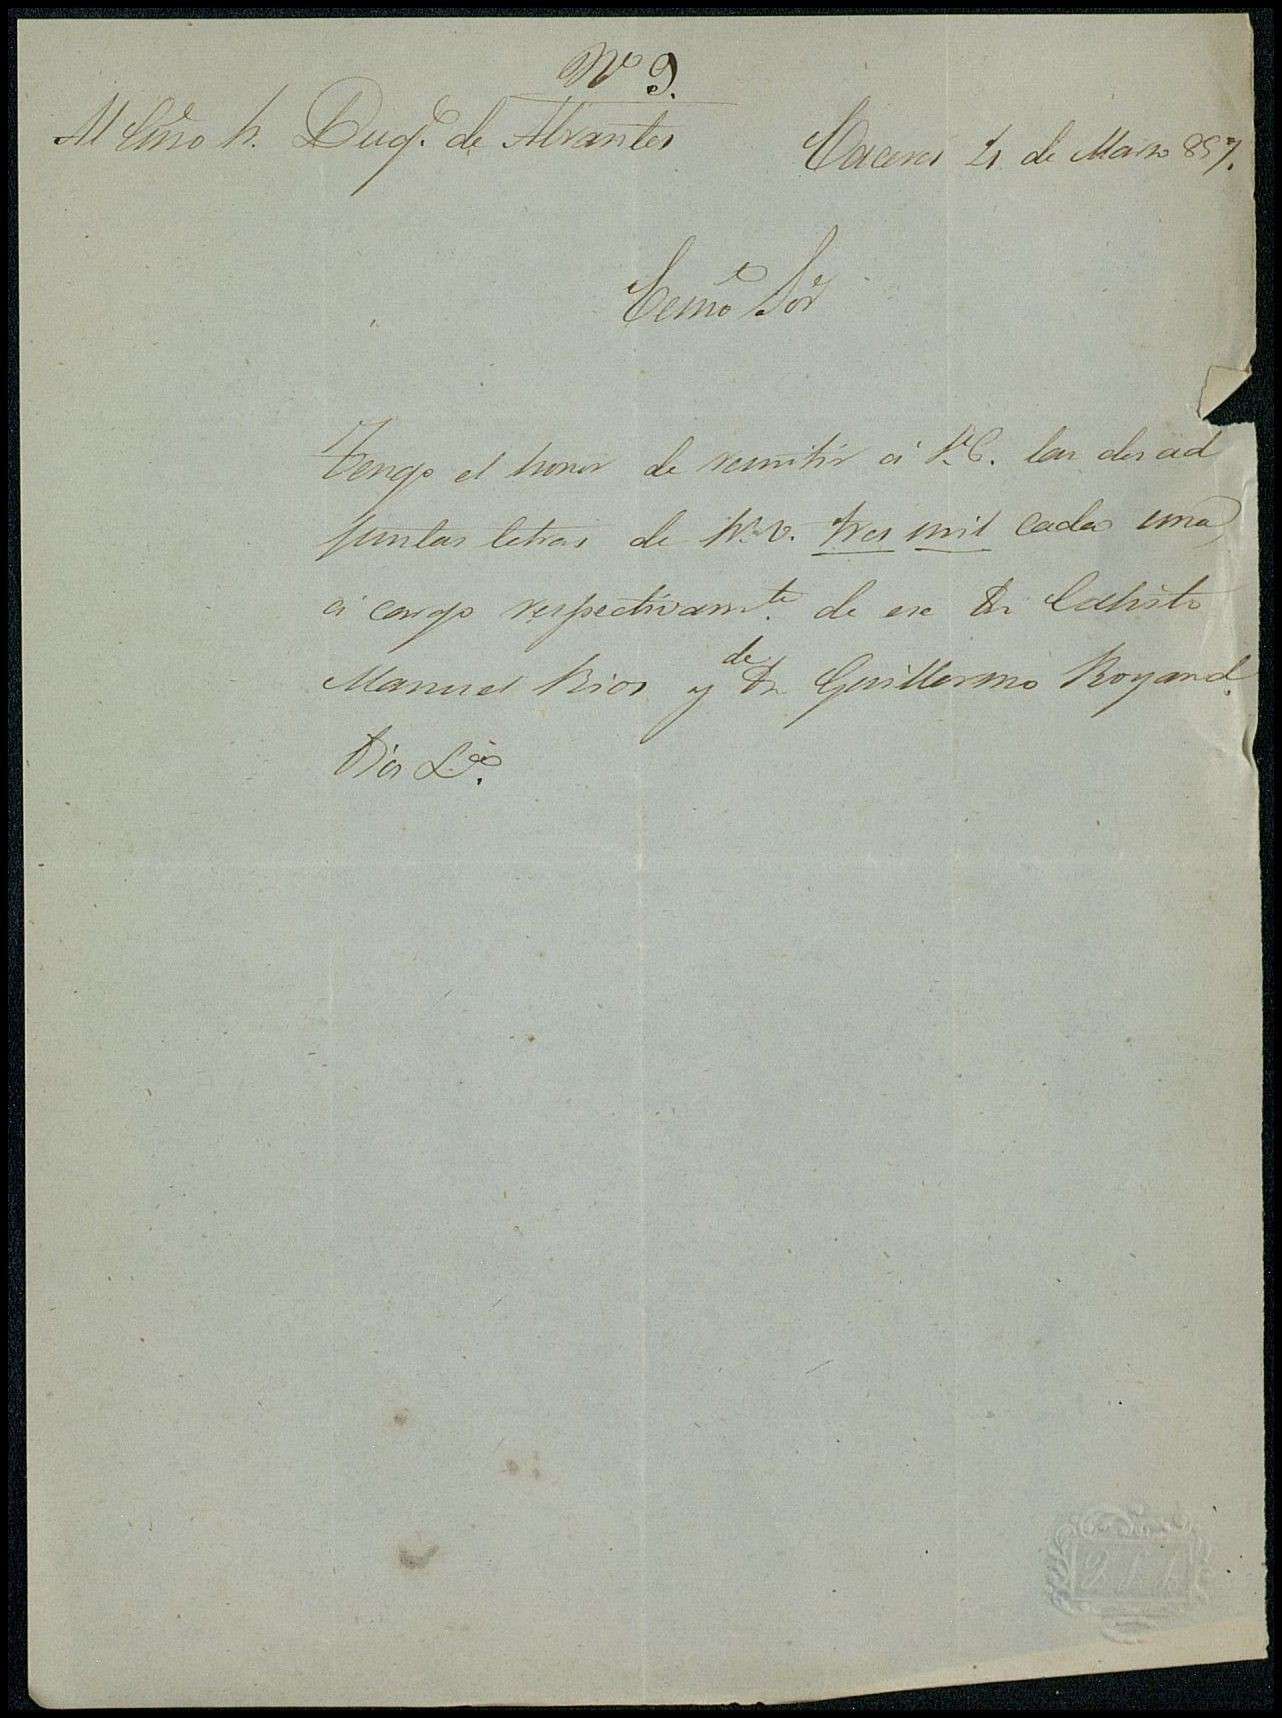 Nº 9.
Al Exmo Sr. Duqe. de Abrantes
Caceres 4 de Marzo 857.
Exmo Sor
Tengo el honor de remitir á V.E. las dos ad
juntas letras de Rs. v. tres mil cada una
á cargo respectivamte. de ese Dn Calisto
Manuel Rios y de Dn Guillermo Royand.
Dios